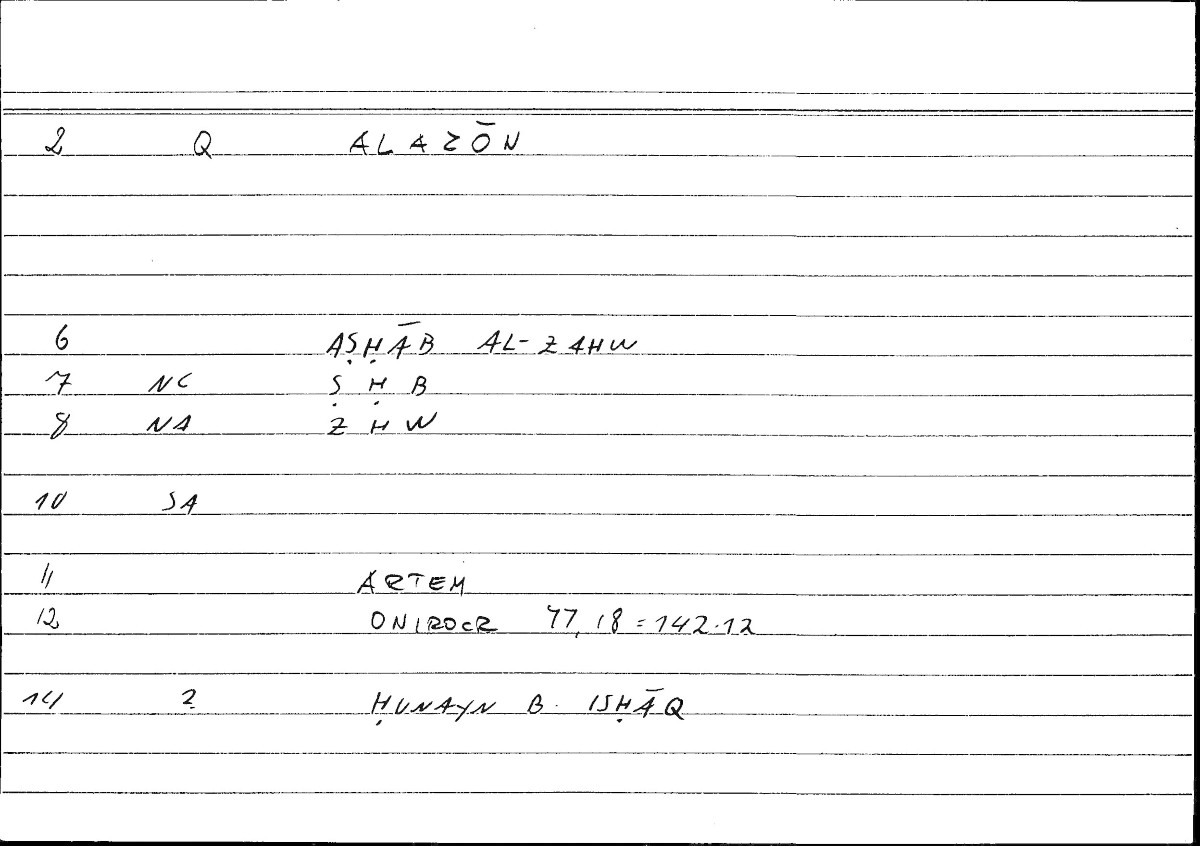 2 Q ALAZŌN
6 AṢḤĀB AL-ZAHW
7 NC Ṣ Ḥ B
8 NA Z H W
10 SA
11 ARTEM
12 ONIROCR 77,18=142.12
14 2 ḤUNAYN B. ISḤĀQ